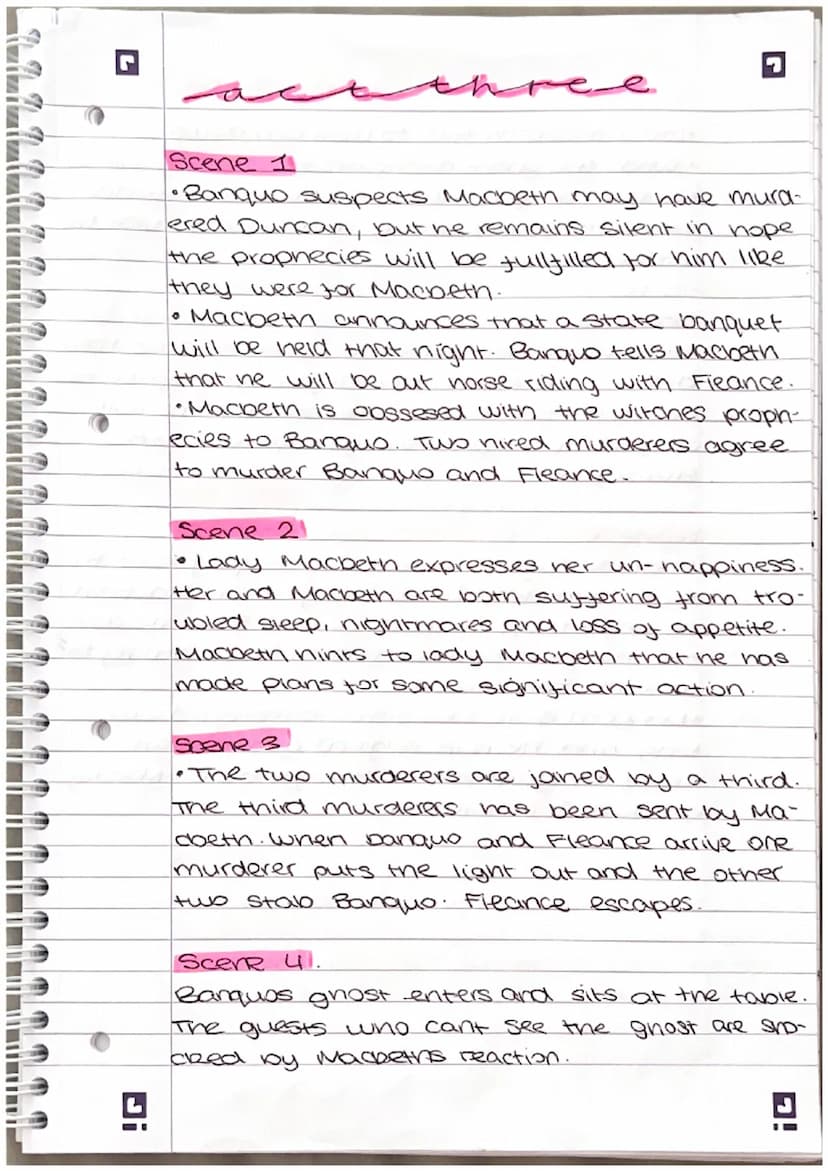 act three
Scene 1
• Banquo suspects Macbeth may have murd-
ered Duncan, but he remains silent in hope
the prophecies will be fullfilled for him like
they were for Macbeth.
• Macbeth announces that a state banquet
will be held that night. Banquo tells Macbeth
that he will be out horse riding with Fleance.
• Macbeth is obssesed with the witches proph-
ecies to Banquo. Two hired murderers agree
to murder Banquo and Fleance.
Scene 2
• Lady Macbeth expresses her un-happiness.
Her and Macbeth are both suffering from tro-
ubled sleep, nightmares and loss of appetite.
Macbeth hints to lady Macbeth that he has
made plans for some significant action.
Scene 3
• The two murderers are joined by a third.
The third murderers has been sent by Ma-
cbeth. When banquo and Fleance arrive one
murderer puts the light out and the other
two stab Banquo. Fleance escapes.
Scene 4.
Banquos ghost enters and sits at the table.
The guests who cant see the ghost are sho-
cked by Macbeths reaction.